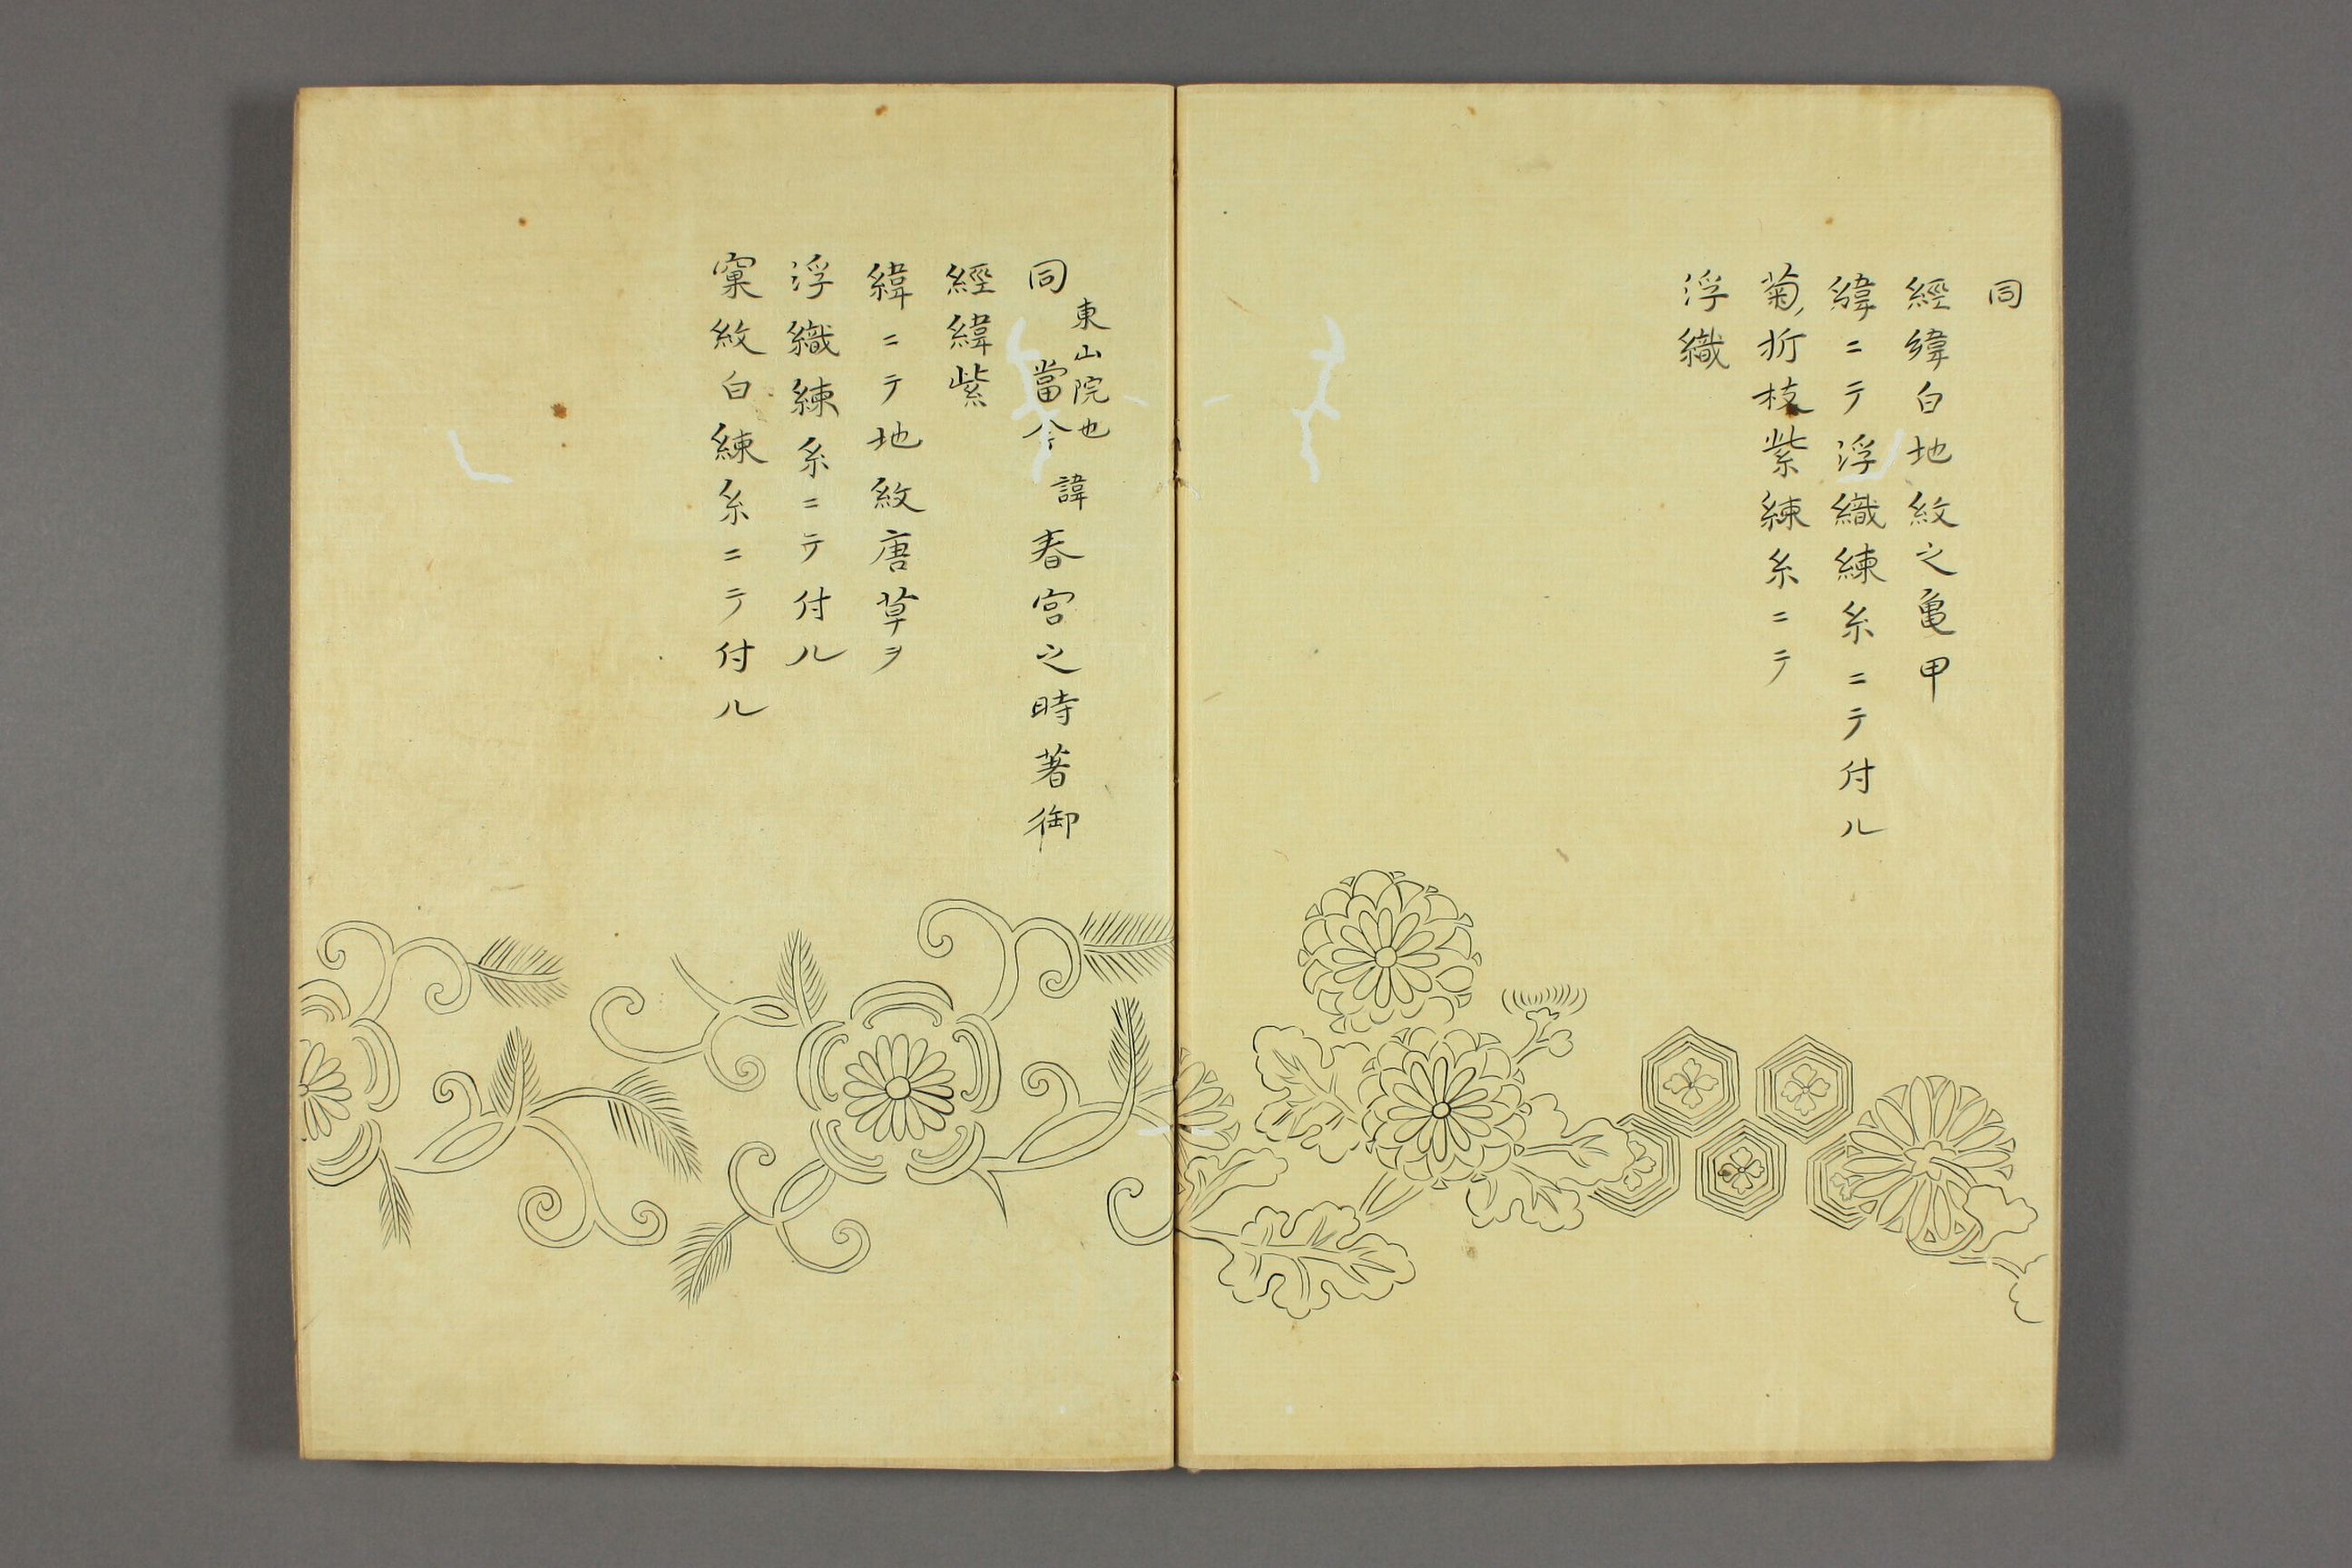 同
經緯白地紋之亀甲
緯ニテ浮織練糸ニテ付ル
菊折枝紫練糸ニテ
浮織
東山院也
同 當今 諱 春宮之時著御
經緯紫
緯ニテ地紋唐草ヲ
浮織練糸ニテ付ル
窠紋白練糸ニテ付ル